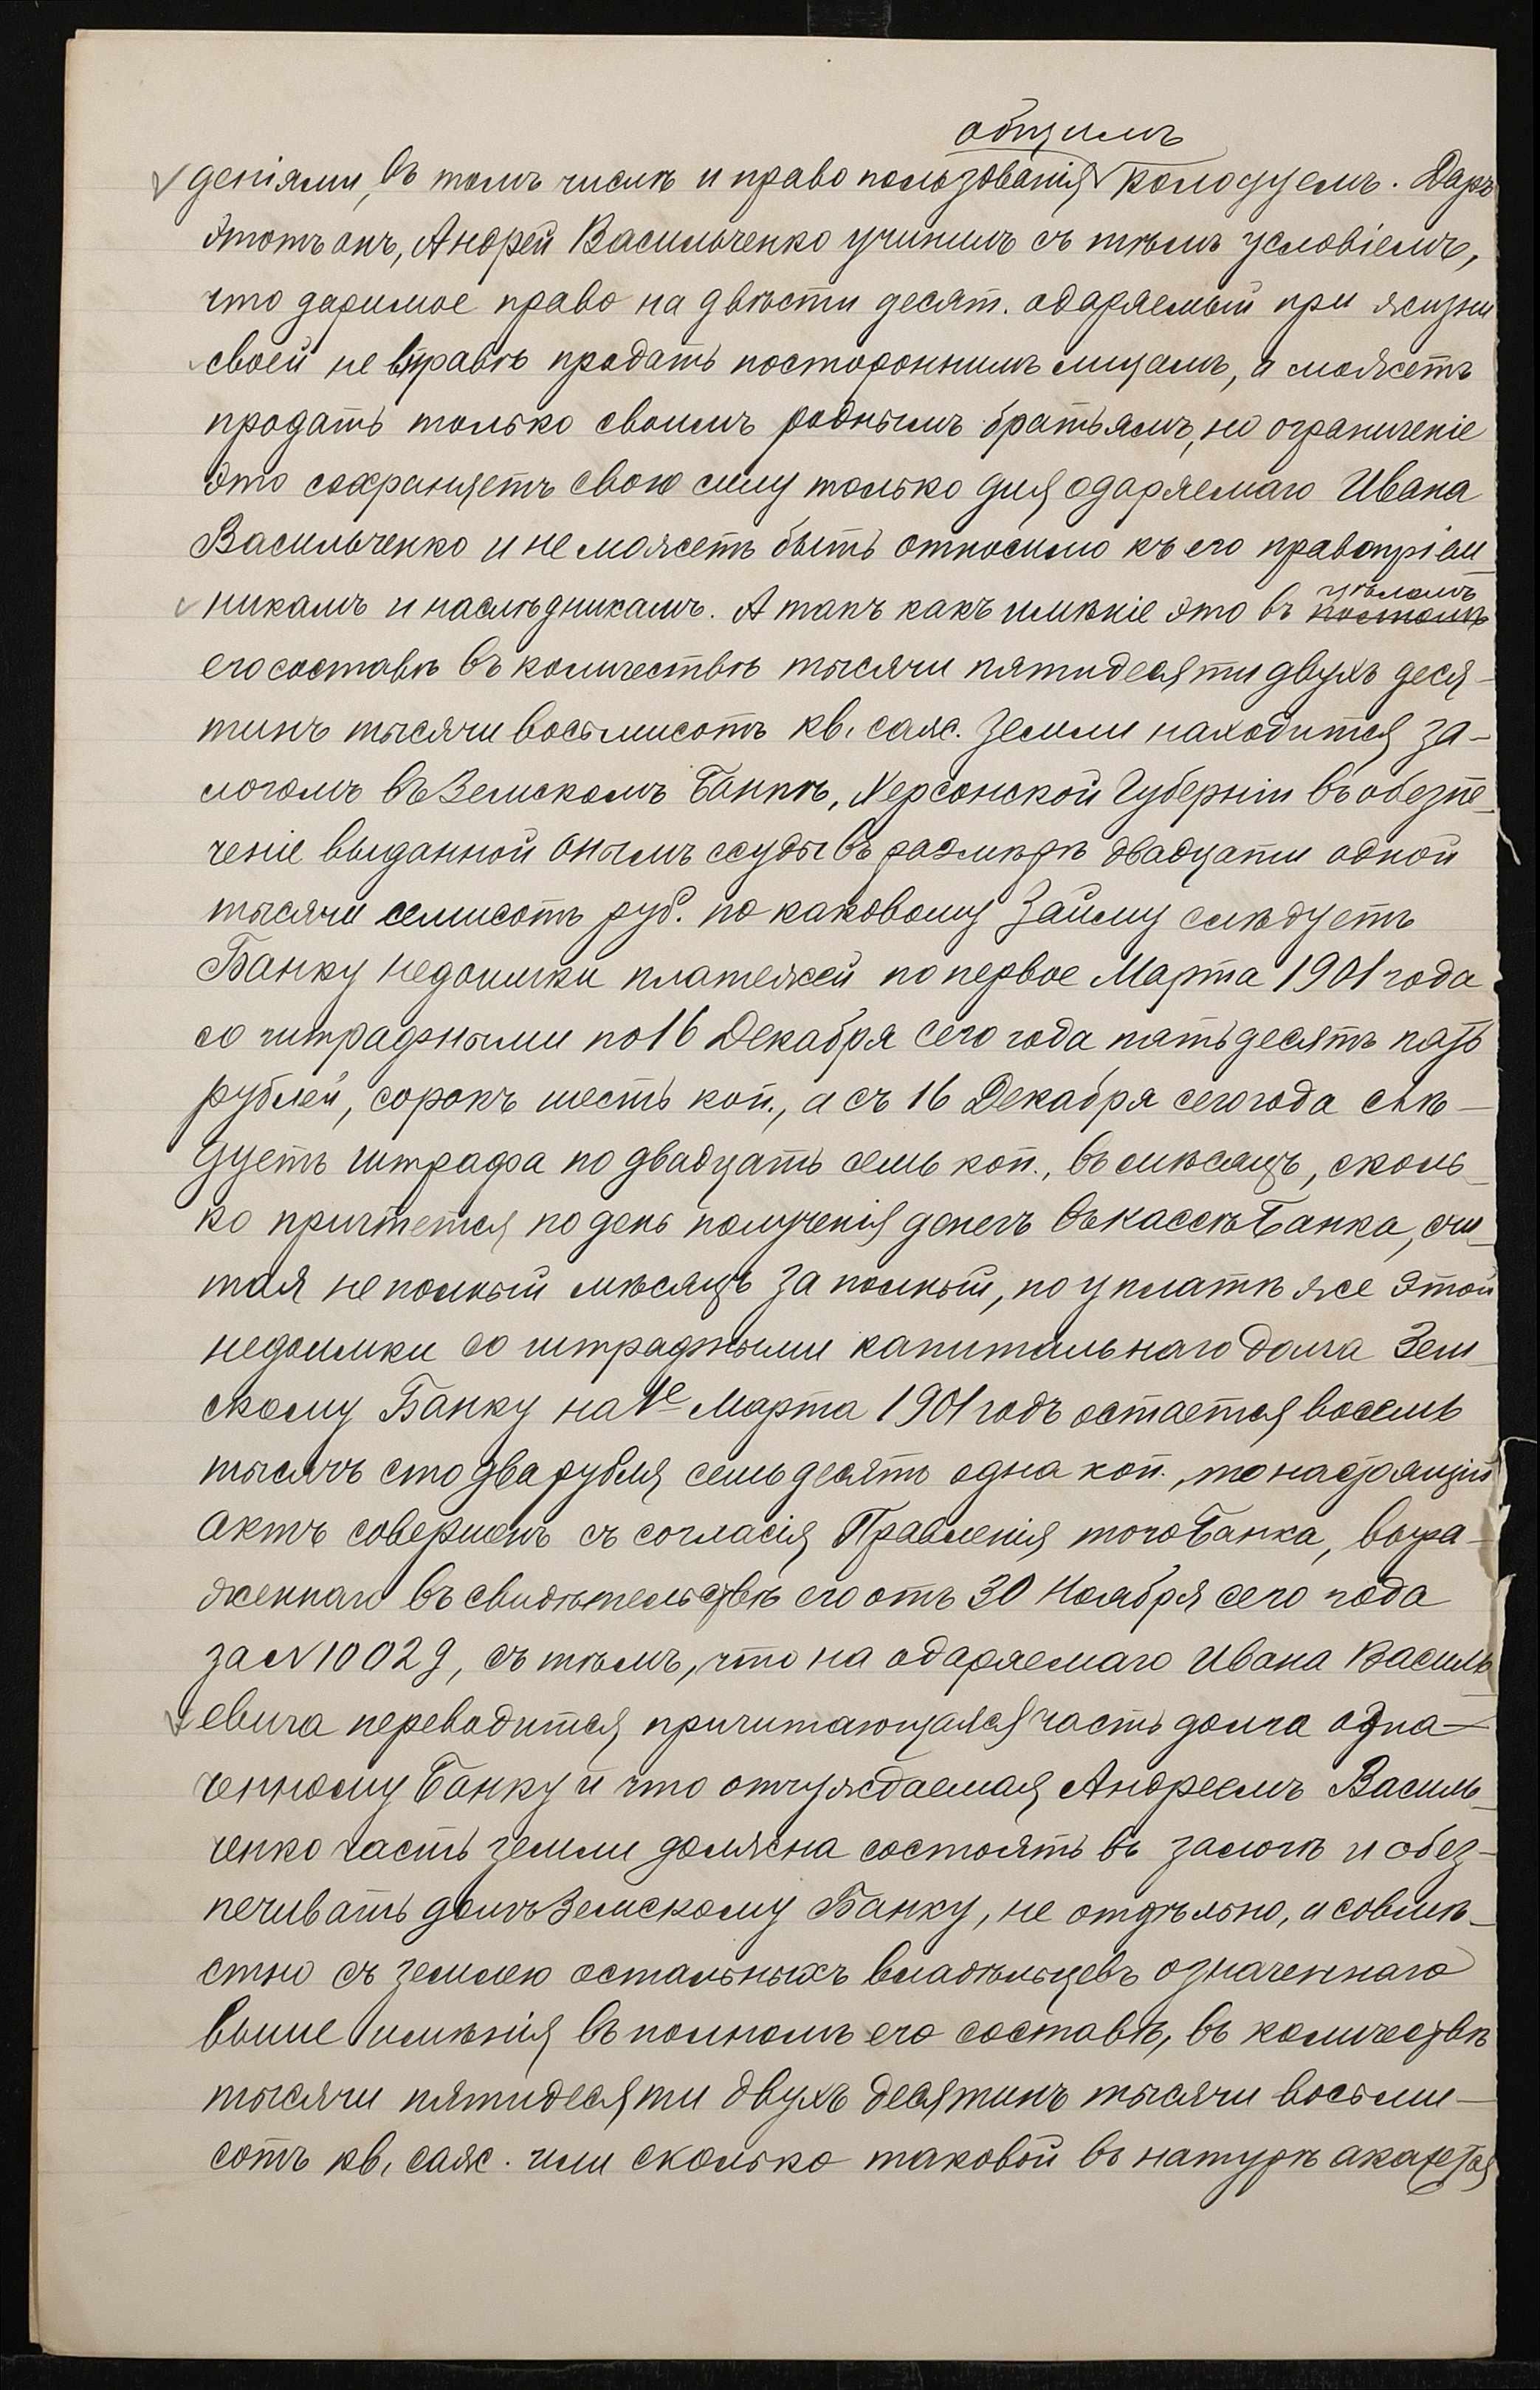 общимъ
деніями, въ томъ числѣ и право пользованія колодцемъ. Даръ
этотъ онъ, Андрей Васильченко учинилъ съ тѣмъ условіемъ,
что даримое право на двѣсти десят. одаряемый при жизни
своей не вправѣ продать постороннимъ лицамъ, а можетъ
продать только своимъ роднымъ братьямъ, но ограниченіе
это сохраняетъ свою силу только для одаряемаго Ивана
Васильченко и не можетъ быть относимо къ его правопріем-
цѣломъ
никамъ и наслѣдникамъ. А такъ какъ имѣніе это въ
его составѣ въ количествѣ тысячи пятидесяти двухъ деся-
тинъ тысячи восьмисотъ кв. саж. земли находится за-
логомъ въ Земскомъ Банкѣ, Херсонской Губерніи въ обезпе-
ченіе выданной онымъ ссуды въ размѣрѣ двадцати одной
тысячи семисотъ руб. по каковому займу слѣдуетъ
Банку недоимки платежей по первое Марта 1901 года
со штрафными по 16 Декабря сего года пятьдесятъ пять
рублей, сорокъ шесть коп., а съ 16 Декабря сего года слѣ-
дуетъ штрафа по двадцать семь коп., въ мѣсяцъ, сколь-
ко причтется по день полученія денегъ въ кассѣ Банка, счи-
тая не полный мѣсяцъ за полный, по уплатѣ же этой
недоимки со штрафными капитальнаго долга Зем-
скому Банку на 1е Марта 1901 годъ остается восемь
тысячъ сто два рубля семьдесятъ одна коп., то настоящій
актъ совершенъ съ согласія Правленія того Банка, выра-
женнаго въ свидѣтельствѣ его отъ 30 Ноября сего года
за № 10029, съ тѣмъ, что на одаряемаго Ивана Василь-
евича переводится причитающаяся часть долга озна-
ченному Банку и что отчуждаемая Андреемъ Василь-
ченко часть земли должна состоять въ залогѣ и обез-
печивать долгъ Земскому Банку, не отдѣльно, а совмѣ-
стно съ землею остальныхъ владѣльцевъ означеннаго
выше имѣнія въ полномъ его составѣ, въ количествѣ
тысячи пятидесяти двухъ десятинъ тысячи восьми-
сотъ кв. саж. или сколько таковой въ натурѣ окажется